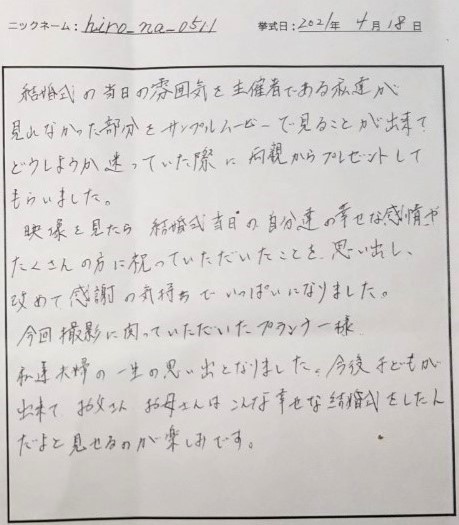 ニックネーム: hiro_na_0511 挙式日: 2021年 4月 18日
結婚式の当日の雰囲気を主催者である私達が
見れなかった部分をサンプルムービーで見ることが出来て
どうしようか迷っていた際に両親からプレゼントして
もらいました。
映像を見たら 結婚式当日の自分達の幸せな感情や
たくさんの方に祝っていただいたことを 思い出し、
改めて感謝の気持ちでいっぱいになりました。
今回撮影に関っていただいたプランナー様
私達夫婦の一生の思い出となりました。今後子どもが
出来て お父さん お母さんはこんな幸せな結婚式をしたん
だよと見せるのが楽しみです。